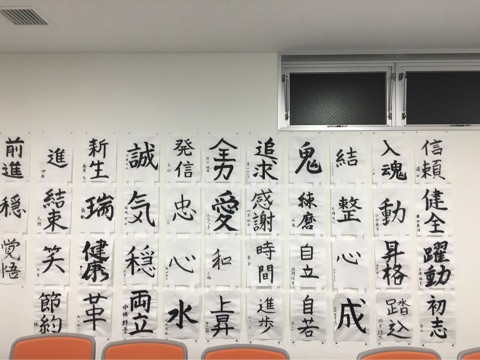 前進
進
新生
誠
発信
全力
追求
鬼
結
入魂
信頼
穏
結束
瑞
気
忠
愛
感謝
練磨
整
動
健全
覚悟
笑
健康
穏
心
和
時間
自立
心
昇格
躍動
節約
革
両立
水
上昇
進歩
自若
成
踏込
初志